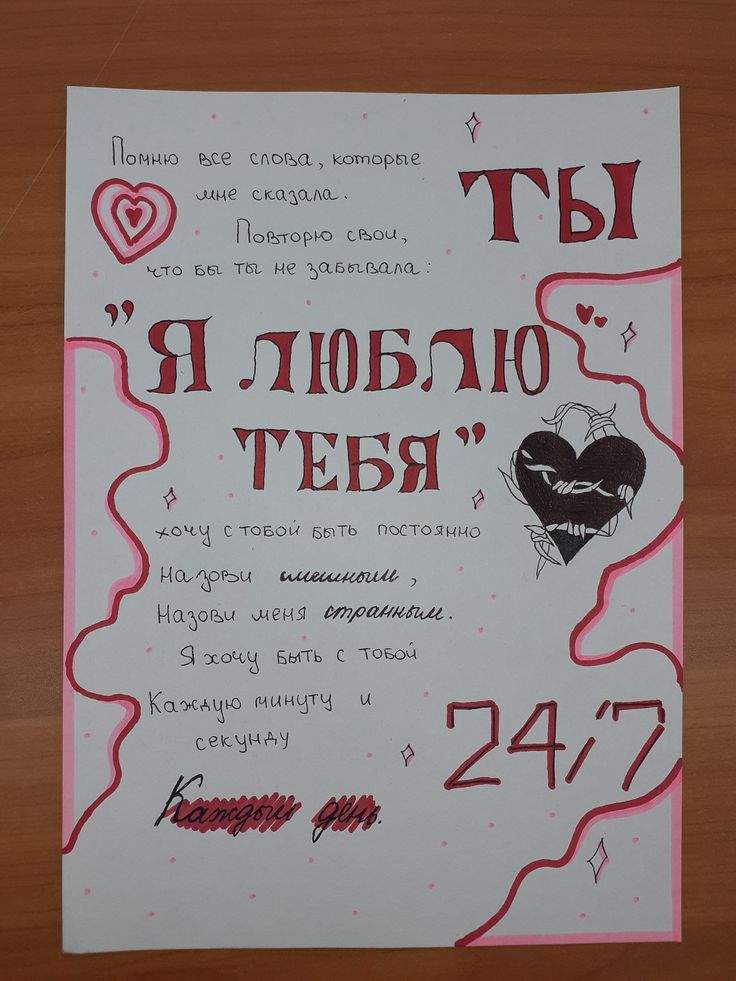 Помню все слова, которые
ТЫ
мне сказала.
Повторю свои,
что бы ты не забывала:
"Я ЛЮБЛЮ
ТЕБЯ"
хочу с тобой быть постоянно
Назови смешным,
Назови меня странным.
Я хочу быть с тобой
Каждую минуту и
секунду
24/7
Каждый день.